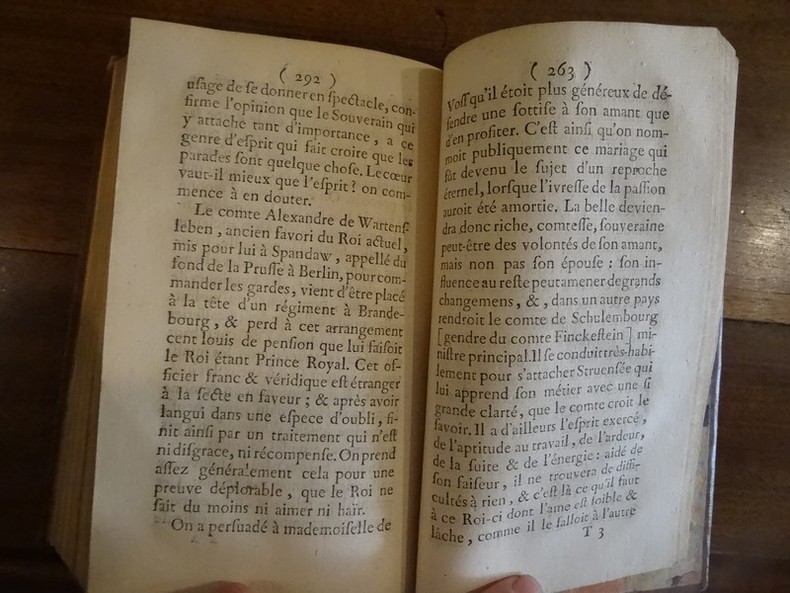 ( 292 )
uſage de ſe donner en ſpectacle, con-
firme l'opinion que le Souverain qui
y attache tant d'importance, a ce
genre d'eſprit qui fait croire que les
parades ſont quelque choſe. Le cœur
vaut-il mieux que l'eſprit? on com-
mence à en douter.
Le comte Alexandre de Wartenſ-
leben, ancien favori du Roi actuel,
mis pour lui à Spandaw, appellé du
fond de la Pruſſe à Berlin, pour com-
mander les gardes, vient d'être placé
à la tête d'un régiment à Brande-
bourg, & perd à cet arrangement
cent louis de penſion que lui faiſoit
le Roi étant Prince Royal. Cet of-
ficier franc & véridique eſt étranger
à la ſecte en faveur; & après avoir
langui dans une eſpece d'oubli, fi-
nit ainſi par un traitement qui n'eſt
ni diſgrace, ni récompenſe. On prend
aſſez généralement cela pour une
preuve déplorable, que le Roi ne
ſait du moins ni aimer ni haïr.
On a perſuadé à mademoiſelle de
( 263 )
Voſſ qu'il étoit plus généreux de dé-
fendre une ſottiſe à ſon amant que
d'en profiter. C'eſt ainſi qu'on nom-
moit publiquement ce mariage qui
fût devenu le ſujet d'un reproche
éternel, lorſque l'ivreſſe de la paſſion
auroit été amortie. La belle devien-
dra donc riche, comteſſe, ſouveraine
peut-être des volontés de ſon amant,
mais non pas ſon épouſe : ſon in-
fluence au reſte peut amener de grands
changemens, &, dans un autre pays
rendroit le comte de Schulembourg
[gendre du comte Finckeſtein] mi-
niſtre principal. Il ſe conduit très-habi-
lement pour s'attacher Struenſée qui
lui apprend ſon métier avec une ſi
grande clarté, que le comte croit le
ſavoir. Il a d'ailleurs l'eſprit exercé,
de l'aptitude au travail, de l'ardeur,
de la ſuite & de l'énergie : aidé de
ſon faiſeur, il ne trouvera de diffi-
cultés à rien, & c'eſt là ce qu'il faut
à ce Roi-ci dont l'ame eſt foible &
lâche, comme il le falloit à l'autre
T 3